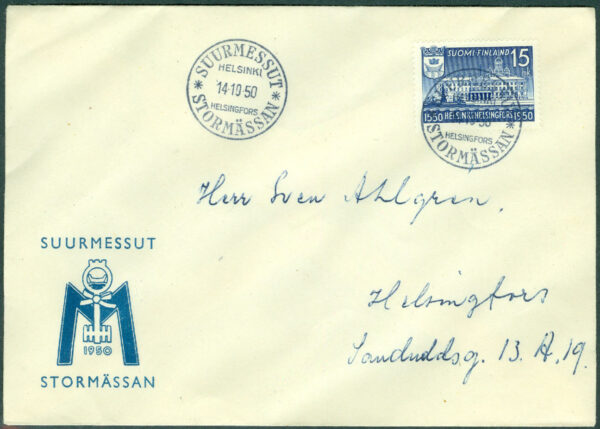 SUURMESSUT
HELSINKI
14·10·50
HELSINGFORS
STORMÄSSAN
SUOMI-FINLAND 15
1550 HELSINKI HELSINGFORS 1950
10·50
HELSINGFORS
STORMÄSSAN
Herr Sven Ahlgren.
Helsingfors
Sanduddsg. 13. A. 19.
SUURMESSUT
M
1950
STORMÄSSAN